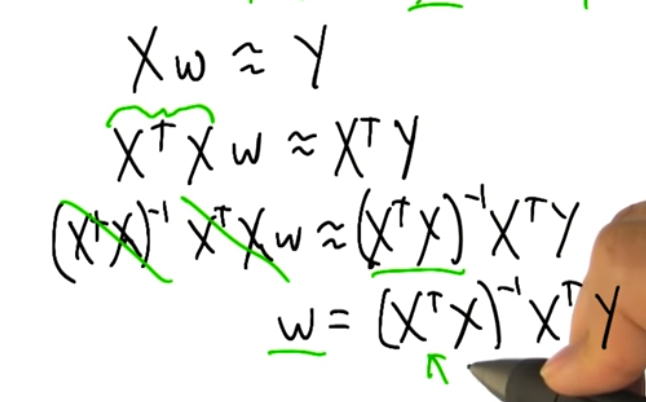 Xw ≈ Y
XᵀX w ≈ XᵀY
(XᵀX)⁻¹ XᵀX w ≈ (XᵀX)⁻¹XᵀY
w = (XᵀX)⁻¹XᵀY